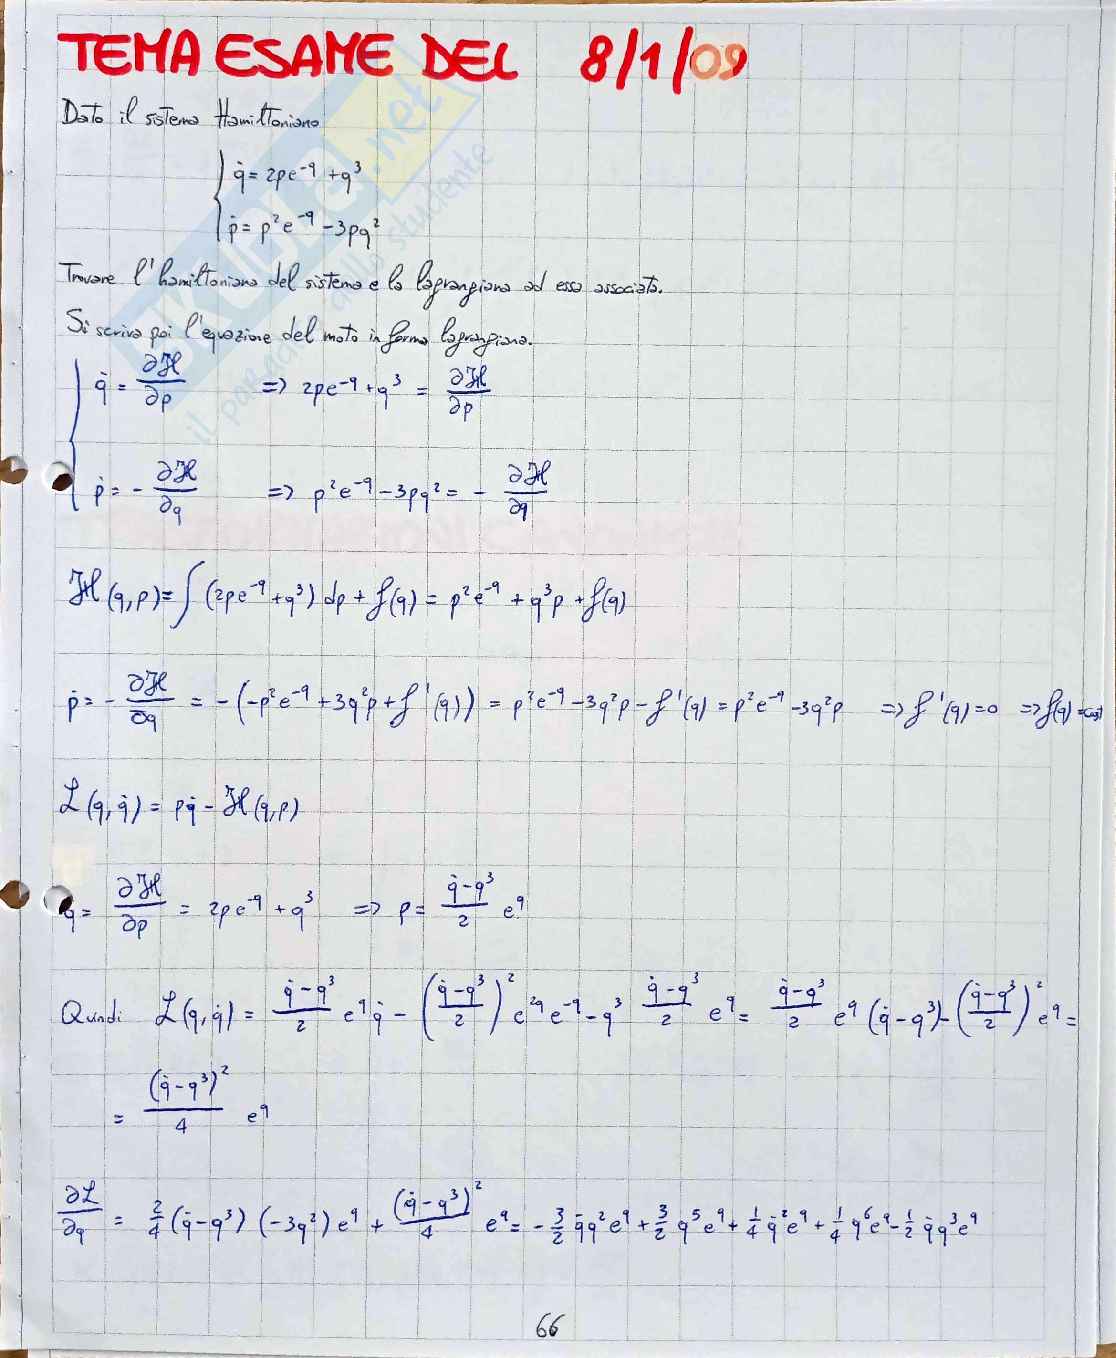 TEMA ESAME DEL 8/1/09
Dato il sistema Hamiltoniano
{ q̇ = 2pe^-q + q³
ṗ = p²e^-q - 3pq²
Trovare l'hamiltoniana del sistema e la lagrangiana ad essa associata.
Si scriva poi l'equazione del moto in forma lagrangiana.
{ q̇ = ∂H/∂p => 2pe^-q + q³ = ∂H/∂p
ṗ = - ∂H/∂q => p²e^-q - 3pq² = - ∂H/∂q
H(q,p) = ∫(2pe^-q + q³) dp + f(q) = p²e^-q + q³p + f(q)
ṗ = - ∂H/∂q = -(-p²e^-q + 3q²p + f'(q)) = p²e^-q - 3q²p - f'(q) = p²e^-q - 3q²p => f'(q) = 0 => f(q) = cost
L(q,q̇) = pq̇ - H(q,p)
q̇ = ∂H/∂p = 2pe^-q + q³ => p = (q̇ - q³)/2 e^q
Quindi L(q,q̇) = (q̇ - q³)/2 e^q q̇ - ((q̇ - q³)/2)² e^2q e^-q - q³ (q̇ - q³)/2 e^q = (q̇ - q³)/2 e^q (q̇ - q³) - ((q̇ - q³)/2)² e^q =
= (q̇ - q³)²/4 e^q
∂L/∂q = 2/4 (q̇ - q³) (-3q²) e^q + (q̇ - q³)²/4 e^q = - 3/2 q̇q²e^q + 3/2 q⁵e^q + 1/4 q̇²e^q + 1/4 q⁶e^q - 1/2 q̇q³e^q
66